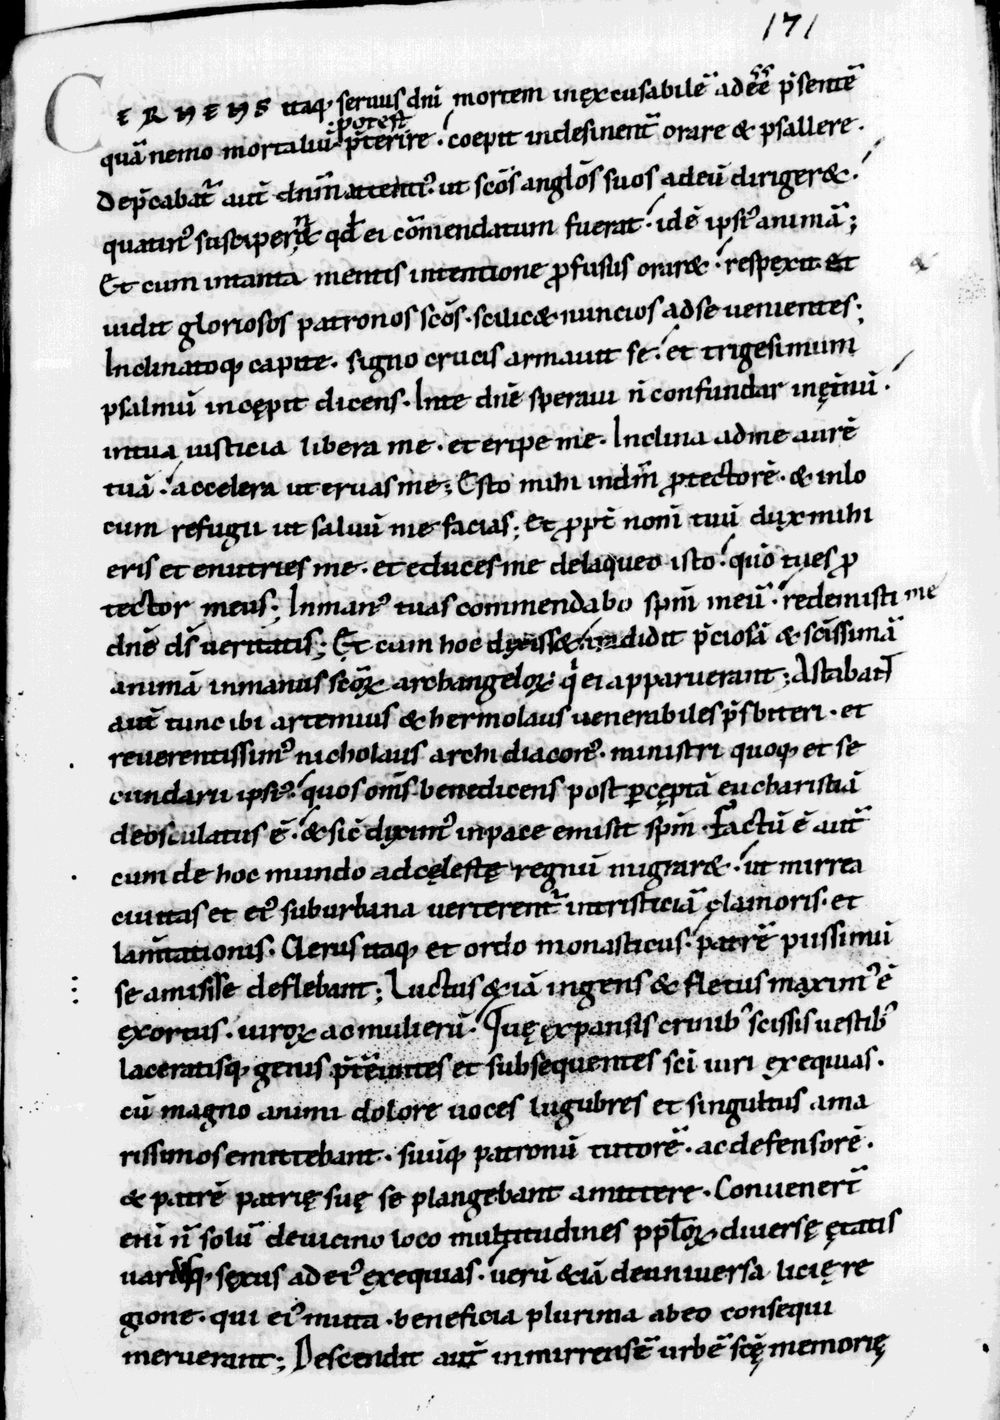 171
CERNENS itaq; seruus dnī mortem inexcusabilē adēē p̄sentē
quā nemo mortaliū potest p̄terire. coepit indesinent̄ orare & psallere.
Dep̄cabat̄ aut̄ dn̄m attenti᾽ ut sc̄os anglōs suos adeū diriger&.
quatin᾽ susciper&̄ qd̄ ei cōmendatum fuerat. idē ipsi᾽ animā;
Et cum intanta mentis intentione ꝓfusus orar& respexit et
uidit gloriosos patronos sc̄os. scilic& nuncios adse uenientes;
Inclinatoq; capite. signo crucis armauit se. et trigesimum
psalmū incępit dicens. Inte dn̄e speraui n̄ confundar inęt̄nū.
intua iusticia libera me. et eripe me. Inclina adme aurē
tuā. accelera ut eruas me; Esto mihi indm̄ ꝓtectorē. & inlo
cum refugii ut saluū me facias; Et ꝓpt̄ nom̄ tuū dux mihi
eris et enutries me. et educes me delaqueo isto. quō tu es ꝓ
tector meus; Inman᾽ tuas commendabo sp̄m meū. redemisti me
dn̄e ds̄ ueritatis; Et cum hoc dixiss& tradidit p̄ciosā & sc̄issimā
animā inmanus sc̄oꝝ archangeloꝝ qi ei apparuerant; Astabant̄
aut̄ tunc ibi artemius & hermolaus uenerabiles p̄sbiteri. et
reuerentissim᾽ nicholaus archidiacon᾽. ministri quoq; et se
cundarii ipsi᾽. quos om̄s benedicens post ꝑceptā eucharistiā
deosculatus ē. & sic̄ diximus inpace emisit sp̄m. Factū ē aut̄
cum de hoc mundo adcęlestę regnū migrar&. ut mirrea
ciuitas et ei᾽ suburbana uerterent̄ intristiciā clamoris. et
lam̄tationis. Clerus itaq; et ordo monasticus. patrē piissimū
se amisisse deflebant; Luctus &iā ingens & fletus maxim᾽ ē
exortus. uiroꝝ ac mulierū. Quę expansis crinib᾽ scissis uestib᾽
laceratisq; genis p̄teuntes et subsequentes sc̄i uiri exequias.
cū magno animi dolore uoces lugubres et singultus ama
rissimos emittebant. suūq; patronū tutorē. ac defensorē.
& patrē patrię suę se plangebant amittere. Conuenert̄
enī n̄ solū deuicino loco multitudines pplōꝝ diuersę ętatis
uariiq; sexus ad ei᾽ exequias. uerū &iā deuniuersa licię re
gione. qui ei᾽ multa beneficia plurima abeo consequi
meruerant; Descendit aut̄ inmirrensē urbē sc̄ę memorię